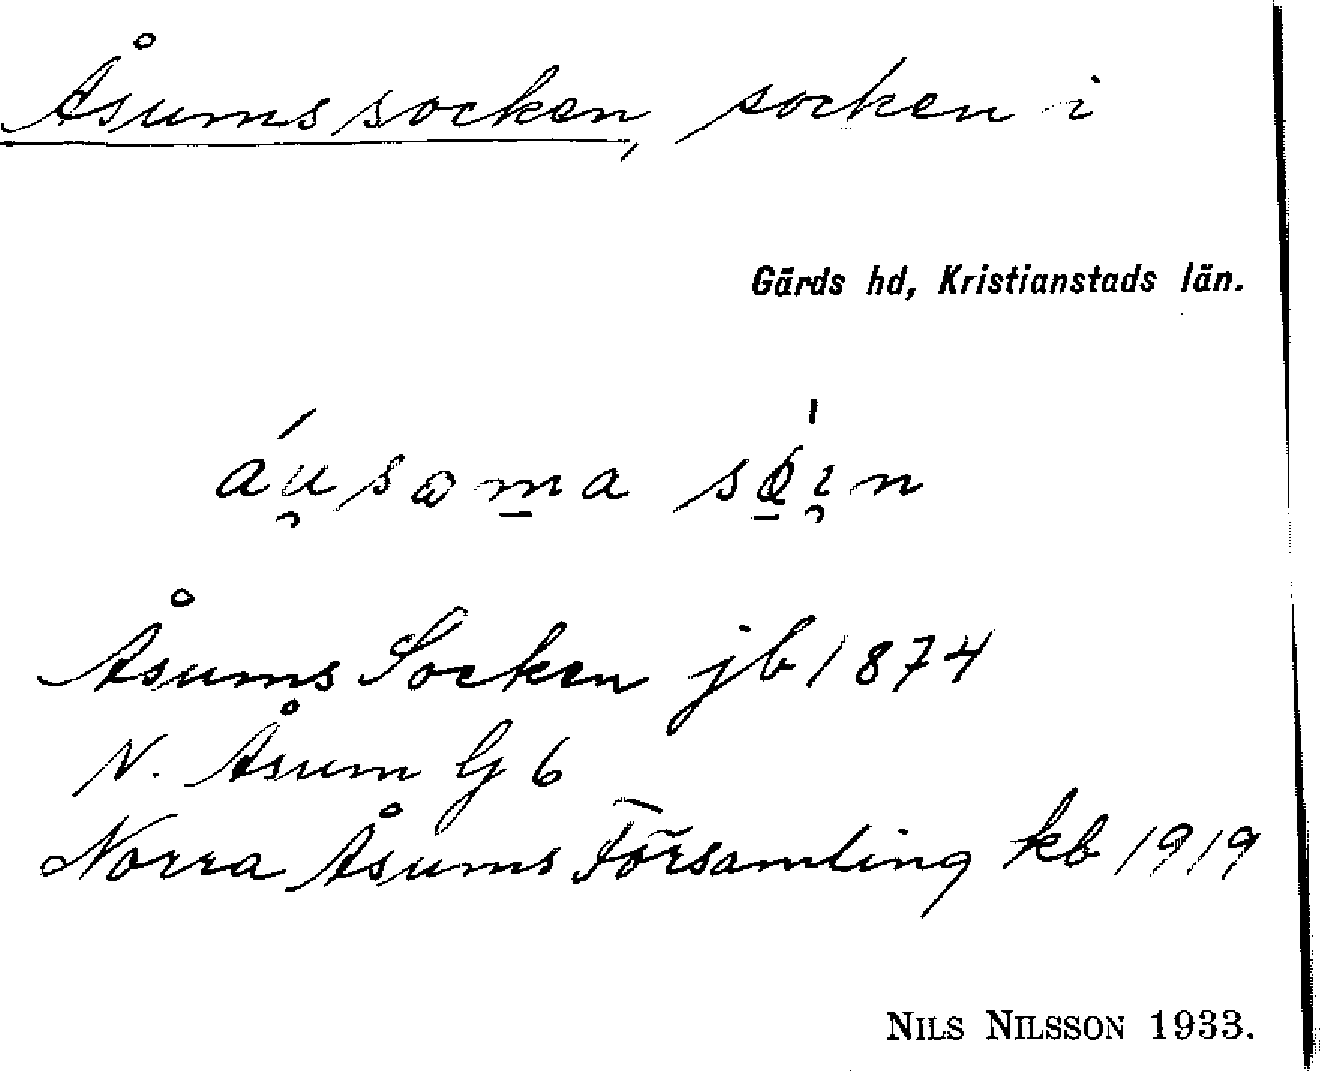 Åsums socken, socken i
Gärds hd, Kristianstads län.
Åsums Socken jb 1874
N. Åsum G 6
Norra Åsums Församling kb 1919
NILS NILSSON 1933.